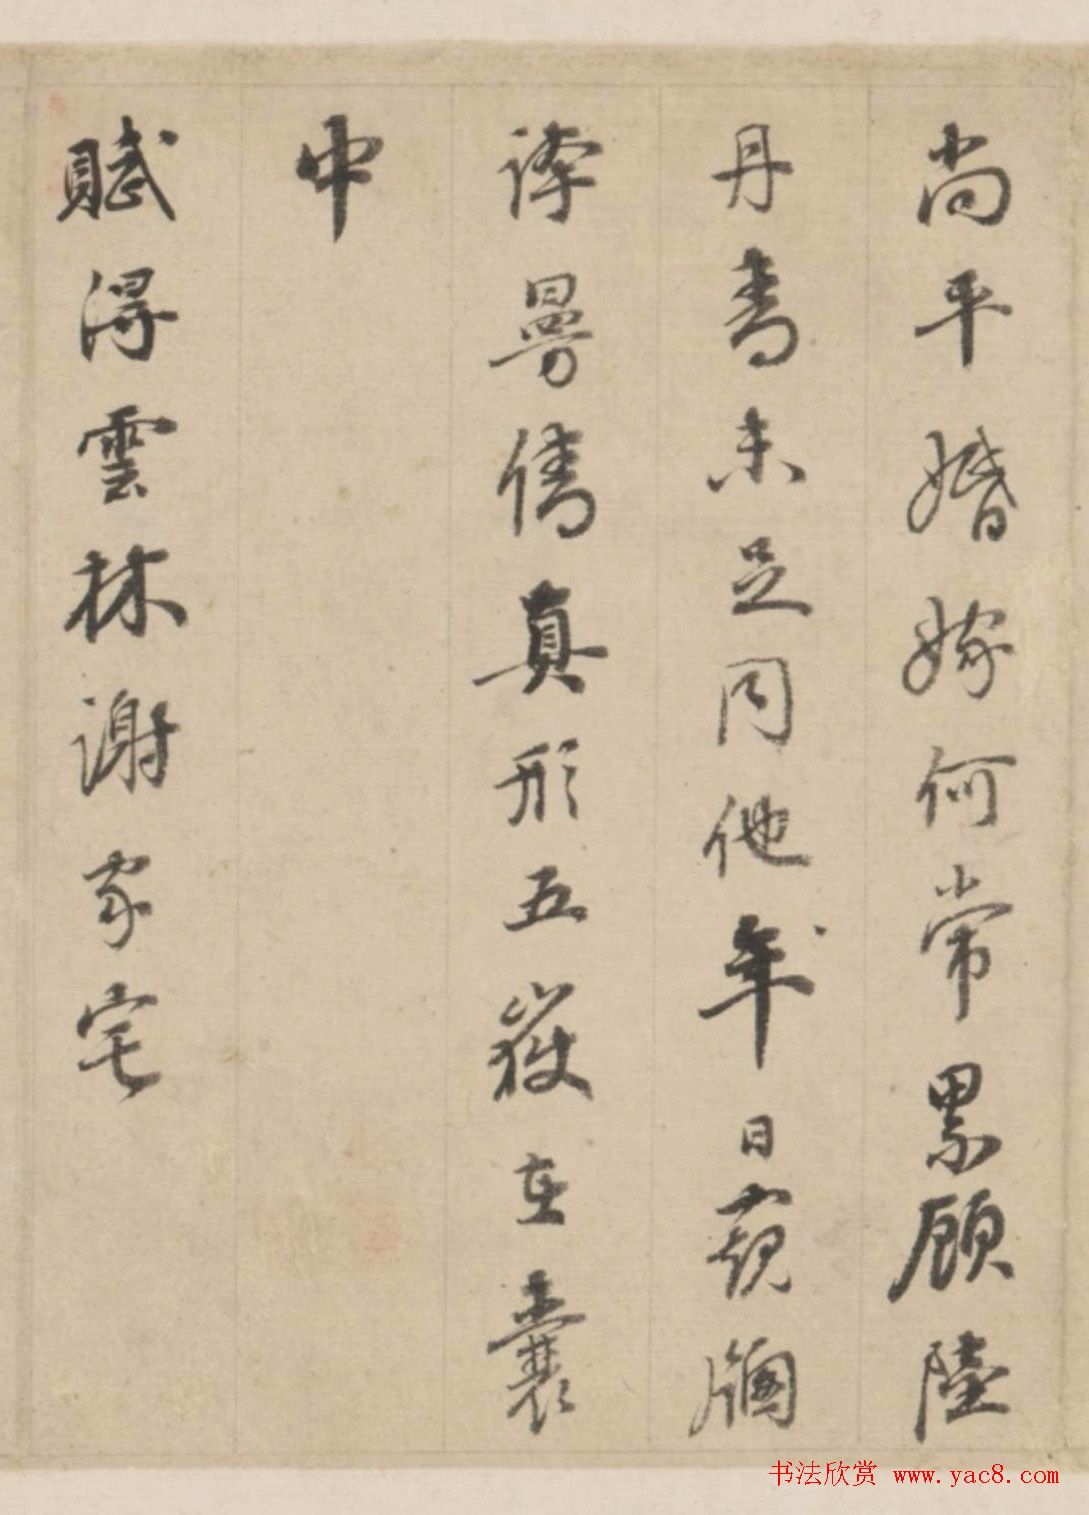 尚平婚嫁何常累顧陸
丹青未足同他年日窺
誇曼倩真形五嶽在囊
中
賦得雲林謝家宅
书法欣赏 www.yac8.com